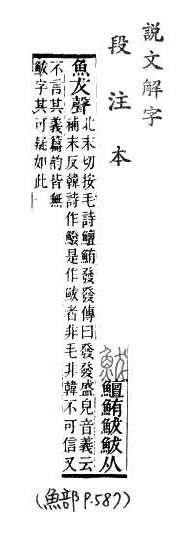 説文解字
段注本
鮁 鱣鮪鮁鮁从
魚犮聲
北末切按毛詩鱣鮪發發傳曰發發盛皃音義云
補末反韓詩作鱍是作鮁者非毛非韓不可信又
不言其義篇韵皆無
鮁字其可疑如此
(魚部 P.587)